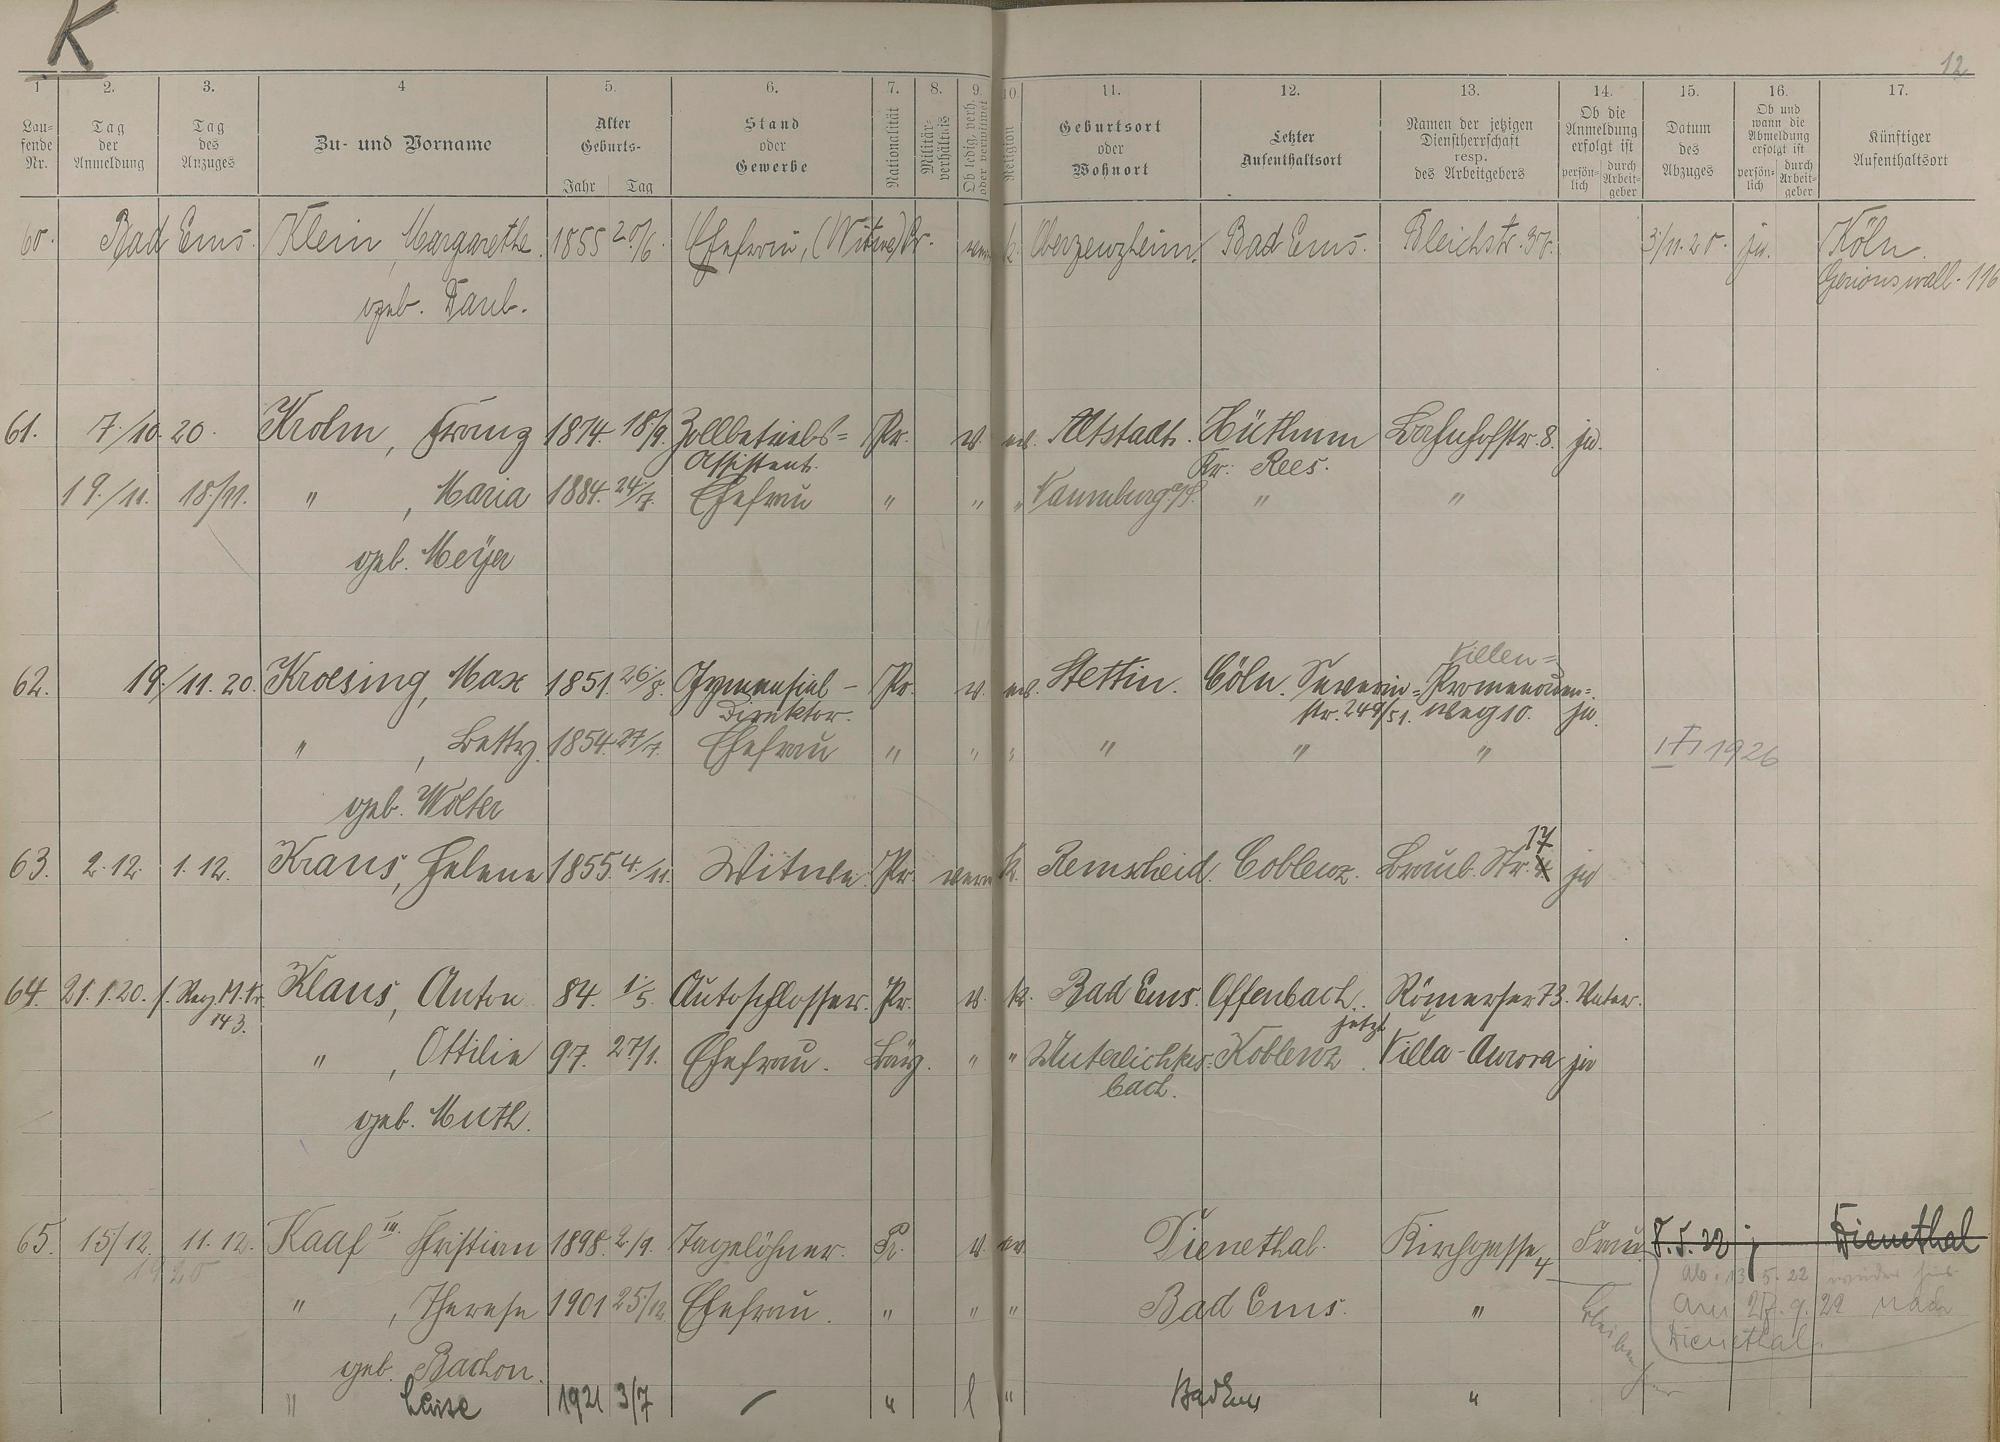 K
12
1 2. 3. 4 5. 6. 7. 8. 9. 10. 11. 12. 13. 14. 15. 16. 17.
Lau-
fende
Nr.
Tag
der
Anmeldung
Tag
des
Anzuges
Zu- und Vorname
Alter
Geburts-
Jahr Tag
Stand
oder
Gewerbe
Nationalität
Militär-
verhältnis
Ob ledig, verh.
oder verwitwet
Religion
Geburtsort
oder
Wohnort
Letzter
Aufenthaltsort
Namen der jetzigen
Dienstherrschaft
resp.
des Arbeitgebers
Ob die
Anmeldung
erfolgt ist
persön-
lich
durch
Arbeit-
geber
Datum
des
Abzuges
Ob und
wann die
Abmeldung
erfolgt ist
persön-
lich
durch
Arbeit-
geber
Künftiger
Aufenthaltsort
60. Bad Ems. Klein, Margarethe. 1855 20/6. Ehefrau, (Witwe) Pr. k. Oberzeuzheim. Bad Ems. Bleichstr. 37. 3/11.20. ja. Köln.
Gerionswall. 116
geb. Daub.
61. 7/10. 20. Krohn, Franz 1874. 18/9. Zollbetriebs= Pr. v. ev. Altstadt. Hüthum Bahnhofstr. 8. ja.
Assistent. Kr: Rees.
19./11. 18/11. " , Maria 1884. 24/7. Ehefrau " " " Naumburg a/S. " "
geb. Meÿer
Villen=
62. 19./11. 20. Kroesing, Max 1851. 26/8. Gymnasial- Pr. v. ev. Stettin. Cöln. Severin= Promenaden=
Direktor. str. 249/51. weg 10. ja.
" , Betty. 1854. 27/7. Ehefrau " " " " " " 1926
geb. Wolter
17
63. 2.12. 1.12. Kraus, Helene 1855. 4/11. Witwe. Pr. verw k. Remscheid. Coblenz. Braub. Str. ja
64. 21.1.20. Klaus, Anton 84. 1/5. Autoschlosser. Pr. v. k. Bad Ems. Offenbach. Römerstr 73. Vater.
143. jetzt
" , Ottilie 97. 27/1. Ehefrau. Bay. " " Koblenz. Villa-Aurora ja
bach.
geb. Muth.
65. 15/12. 11.12. Kaaf III. Christian 1898. 2/9. Tagelöhner. Pr. v. ev. Dienethal. Kirchgasse 4 Frau 7.5.22 j Dienethal
1920 ab. 13.5.22 wieder hier
" , Therese 1901 25/12 Ehefrau. " " " Bad Ems. " am 27.9.22 nach
Dienethal.
geb. Bachon.
" Luise 1921 3/7 " l " Bad Ems "